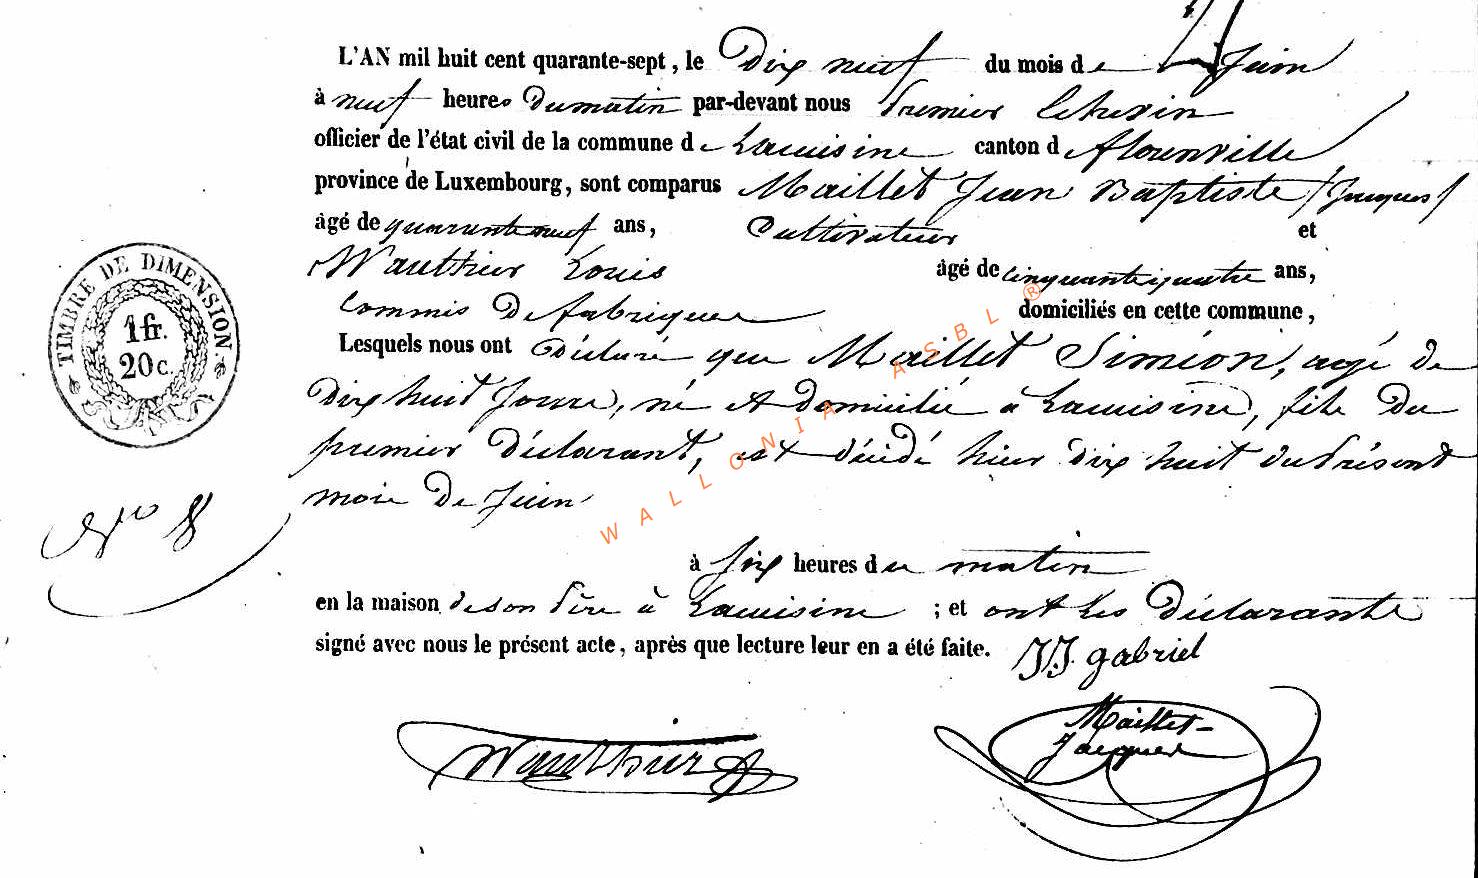 L'AN mil huit cent quarante-sept, le Dix neuf du mois de Juin
à neuf heures Dumatin par-devant nous premier Echevin
officier de l'état civil de la commune de Lacuisine canton d florenville
province de Luxembourg, sont comparus Maillet Jean Baptiste (Jacques)
âgé de quarante neuf ans, Cultivateur et
Wauthier Louis âgé de cinquante quatre ans,
Commis De fabrique domiciliés en cette commune,
Lesquels nous ont Déclaré que Maillet Siméon, agé de
Dix huit Jours, né et domicilié à Lacuisine, fils Du
premier Déclarant, est décédé hier dix huit du présent
mois De Juin
N° 8
à six heures du matin
en la maison de son Père à Lacuisine ; et ont Les Déclarants
signé avec nous le présent acte, après que lecture leur en a été faite. JJ. gabriel
Wauthier
Maillet-
Jacques
TIMBRE DE DIMENSION
1 fr.
20 c.
WALLONIA ASBL ®